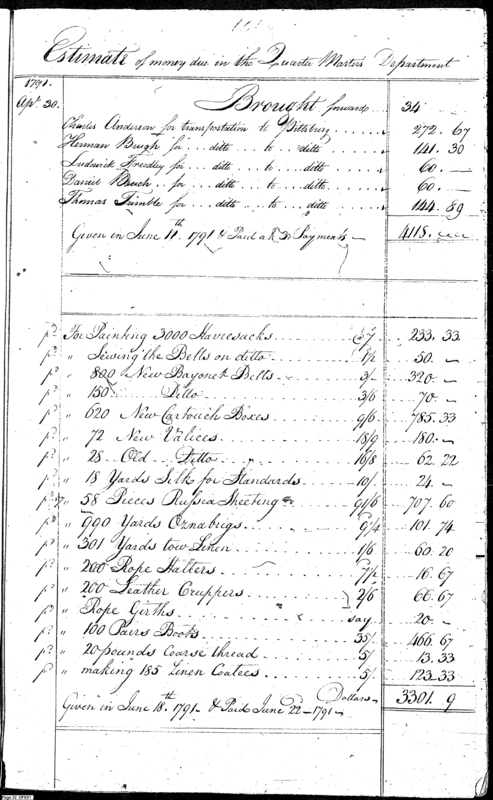 Estimate of money due in the Quarter Masters Department
1791.
Apl. 30. Brought forward 34
Charles Anderson for transportation to Pittsburg 272. 67
Herman Bough for ditto to ditto 141. 30
Ludowick Freedley for ditto to ditto 60. —
Daniel for ditto to ditto 60. —
Thomas Trimble for ditto to ditto 144. 89
Given in June 11th 1791 & Paid at 3 Payments — 4118.
pd For Painting 3000 Haversacks 233. 33
pd " Sewing the Belts on ditto 1/2 50. —
pd " 800 New Bayonet Belts 3/- 320. —
pd " 150 Ditto 3/6 70. —
pd " 620 New Cartouch Boxes 9/6 785. 33
pd " 72 New Valices 18/9 180. —
pd " 28 Old Ditto 16/8 62. 22
pd " 18 Yards Silk for Standards 10/. 24. —
pd " 58 Pieces Russia Sheeting @ 91/6 707. 60
pd " 990 Yards Oznabrigs 9 1/4 101. 74
pd " 301 Yards tow Linen 1/6 60. 20
pd " 200 Rope Halters 7 1/2 16. 67
pd " 200 Leather Cruppers 2/6 66. 67
pd " Rope Girths say 20. —
pd " 100 Pairs Boots 35/. 466. 67
pd " 20 pounds Coarse thread 5/. 13. 33
pd " making 185 Linen Coatees 5/. 123. 33
Dollars 3301. 9
Given in June 18th 1791 & Paid June 22 — 1791 —